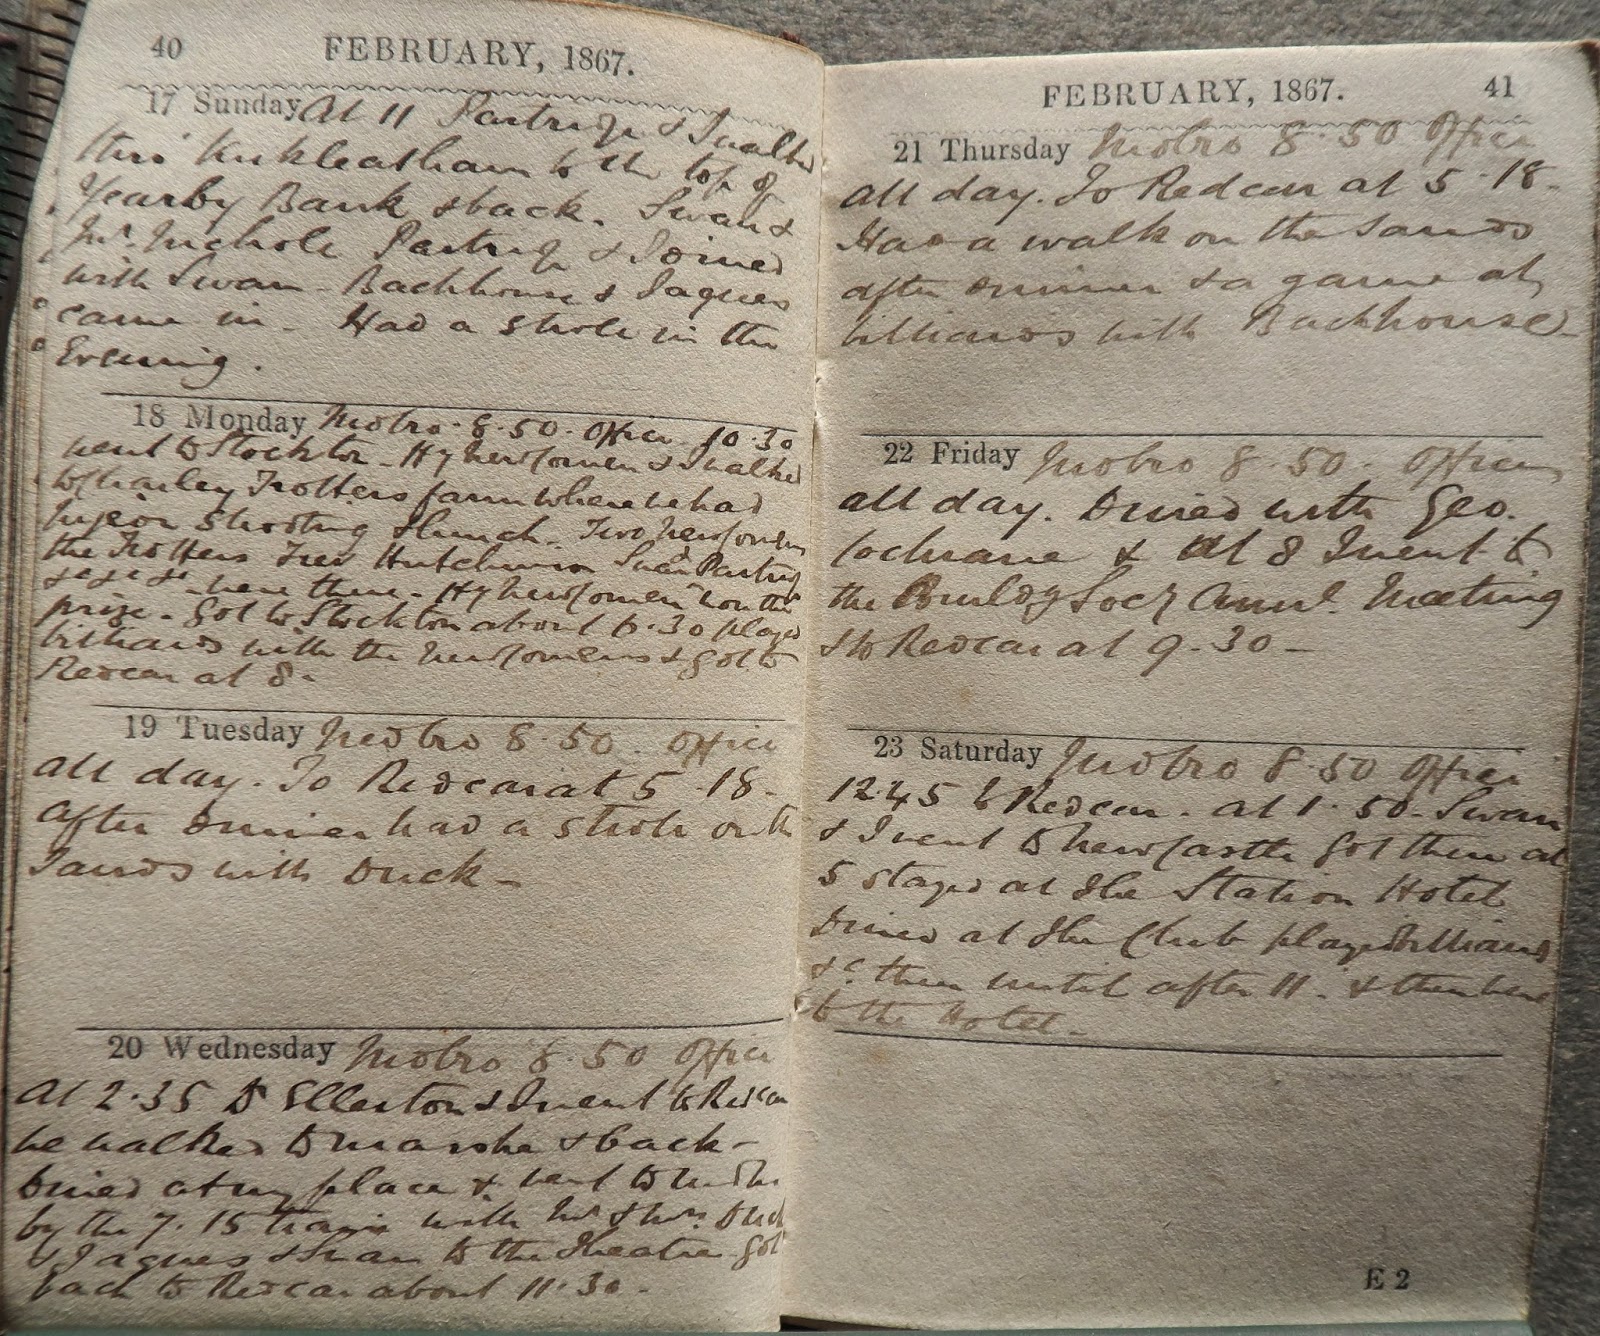 40 FEBRUARY, 1867.
17 Sunday At 11 Partridge & I walked
thro' Kirkleatham to the top of
Yearby Bank & back. Swan &
Mr. Nichole Partridge & I dined
with Swan - Backhouse & Jaques
came in - Had a stroll in the
Evening.
18 Monday Midbro 8.50. Office 10.30
went to Stockton - Hy Newcomen & I walked
to Charley Trotters farm where we had
pigeon shooting & lunch. Two Newcomens
the Trotters Hutchinson Swan Partridge
&c &c &c were there - Hy Newcomen won the
prize - Got to Stockton about 6.30 played
billiards with the Newcomens & got to
Redcar at 8 -
19 Tuesday Midbro 8.50. Office
all day. To Redcar at 5.18 -
After dinner had a stroll on the
Sands with Duck -
20 Wednesday Midbro 8.50 Office
At 2.35 Ellerton & I went to Redcar
we walked to Marske & back -
Dined at my place & went to Midbro
by the 7.15 train with Mr & Mrs. Duck
& Jaques & Swan to the Theatre - Got
back to Redcar about 11.30 -
FEBRUARY, 1867. 41
21 Thursday Midbro 8.50 Office
all day. To Redcar at 5.18 -
Had a walk on the Sands
after dinner & a game at
billiards with Backhouse -
22 Friday Midbro 8.50. Office
all day. Dined with Geo.
Cochrane & at 8 I went to
the Buildg Socy Annul. Meeting
& to Redcar at 9.30 -
23 Saturday Midbro 8.50 Office
12.45 to Redcar. at 1.50 - Swan
& I went to Newcastle got there at
5 stayed at the Station Hotel
Dined at the Club played billiards
&c. there until after 11. & then
to the Hotel -
E 2